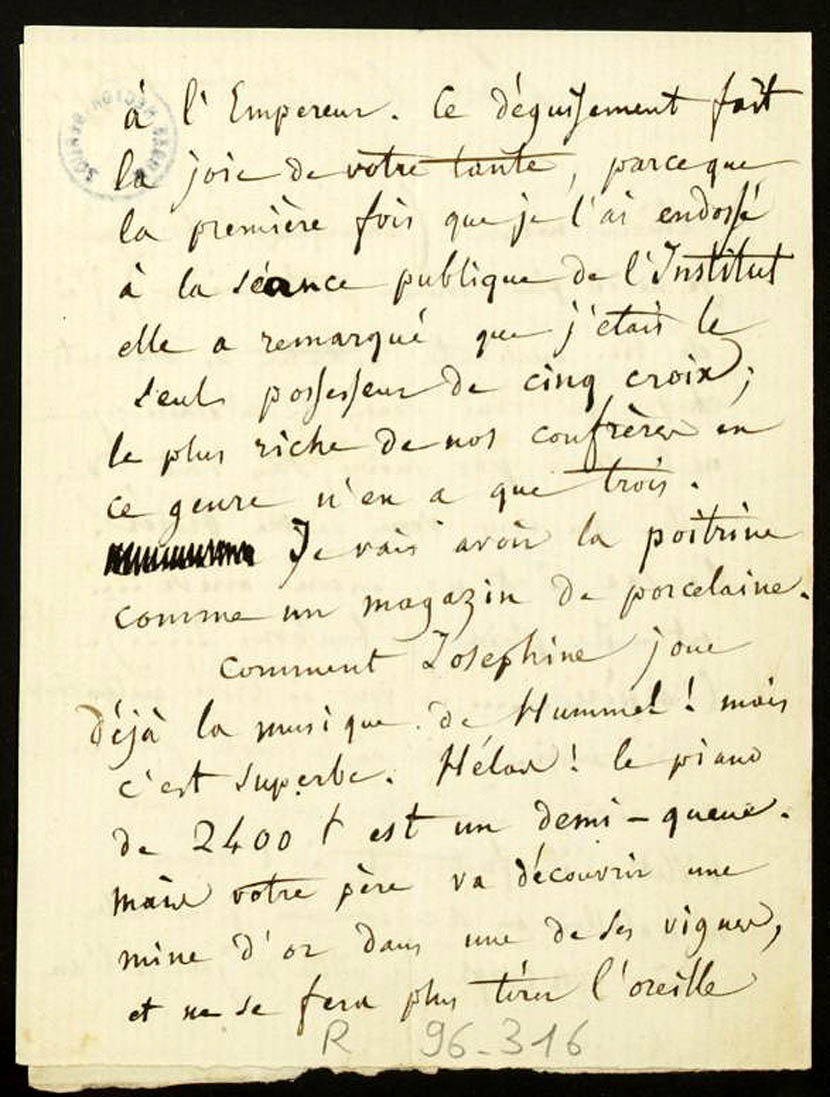 à l'Empereur. Ce déguisement fait
la joie de votre tante, parceque
la première fois que je l'ai endossé
à la séance publique de l'Institut
elle a remarqué que j'étais le
seul possesseur de cinq croix;
le plus riche de nos confrères en
ce genre n'en a que trois.
Je vais avoir la poitrine
comme un magazin de porcelaine.
Comment Josephine joue
déjà la musique de Hummel! mais
c'est superbe. Hélas! le piano
de 2400 f est un demi-queue.
mais votre père va découvrir une
mine d'or dans une de ses vignes,
et ne se fera plus tirer l'oreille
R 96-316